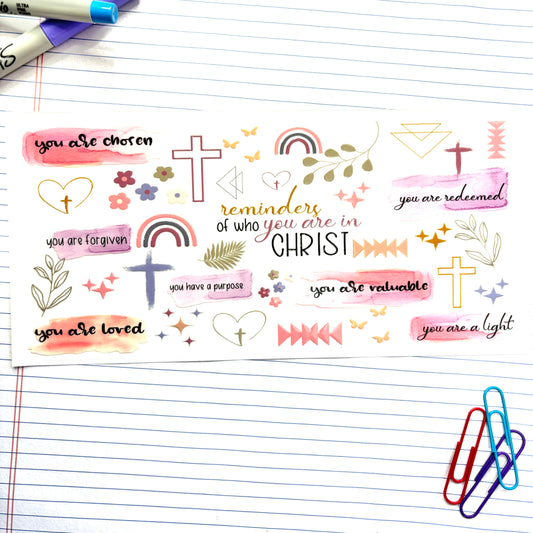 you are chosen
you are forgiven
you are loved
you have a purpose
reminders
of who you are in
CHRIST
you are redeemed
you are valuable
you are a light